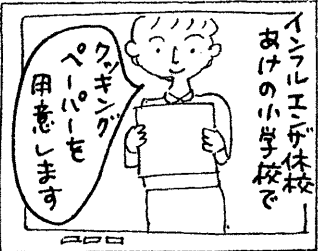 インフルエンザ休校
あけの小学校で
クッキング
ペーパーを
用意します